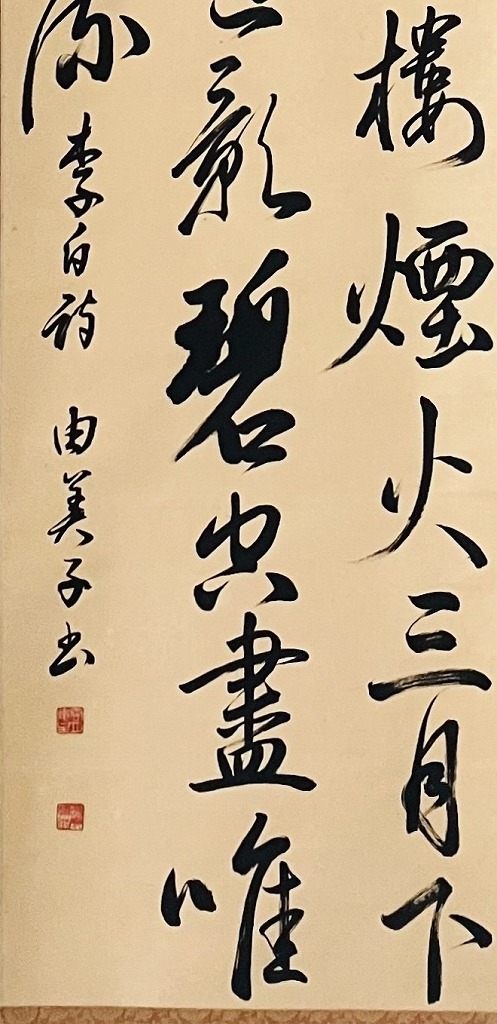 樓煙火三月下
影碧空盡唯
流
李白詩 由美子書